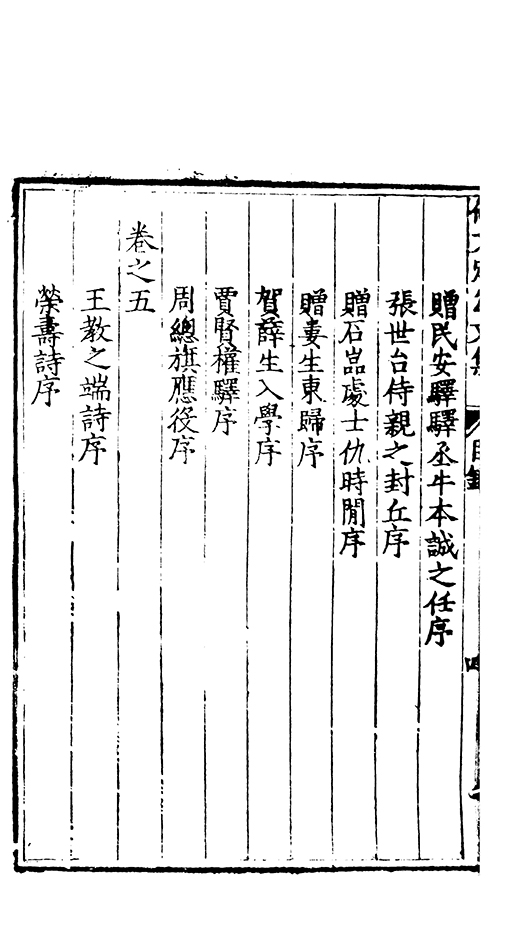 贈民安驛驛丞牛本誠之任序
張世台侍親之封丘序
贈石嵓處士仇時閒序
贈婁生東歸序
賀薛生入學序
賈賢權驛序
周總旗應役序
卷之五
王教之端詩序
榮壽詩序